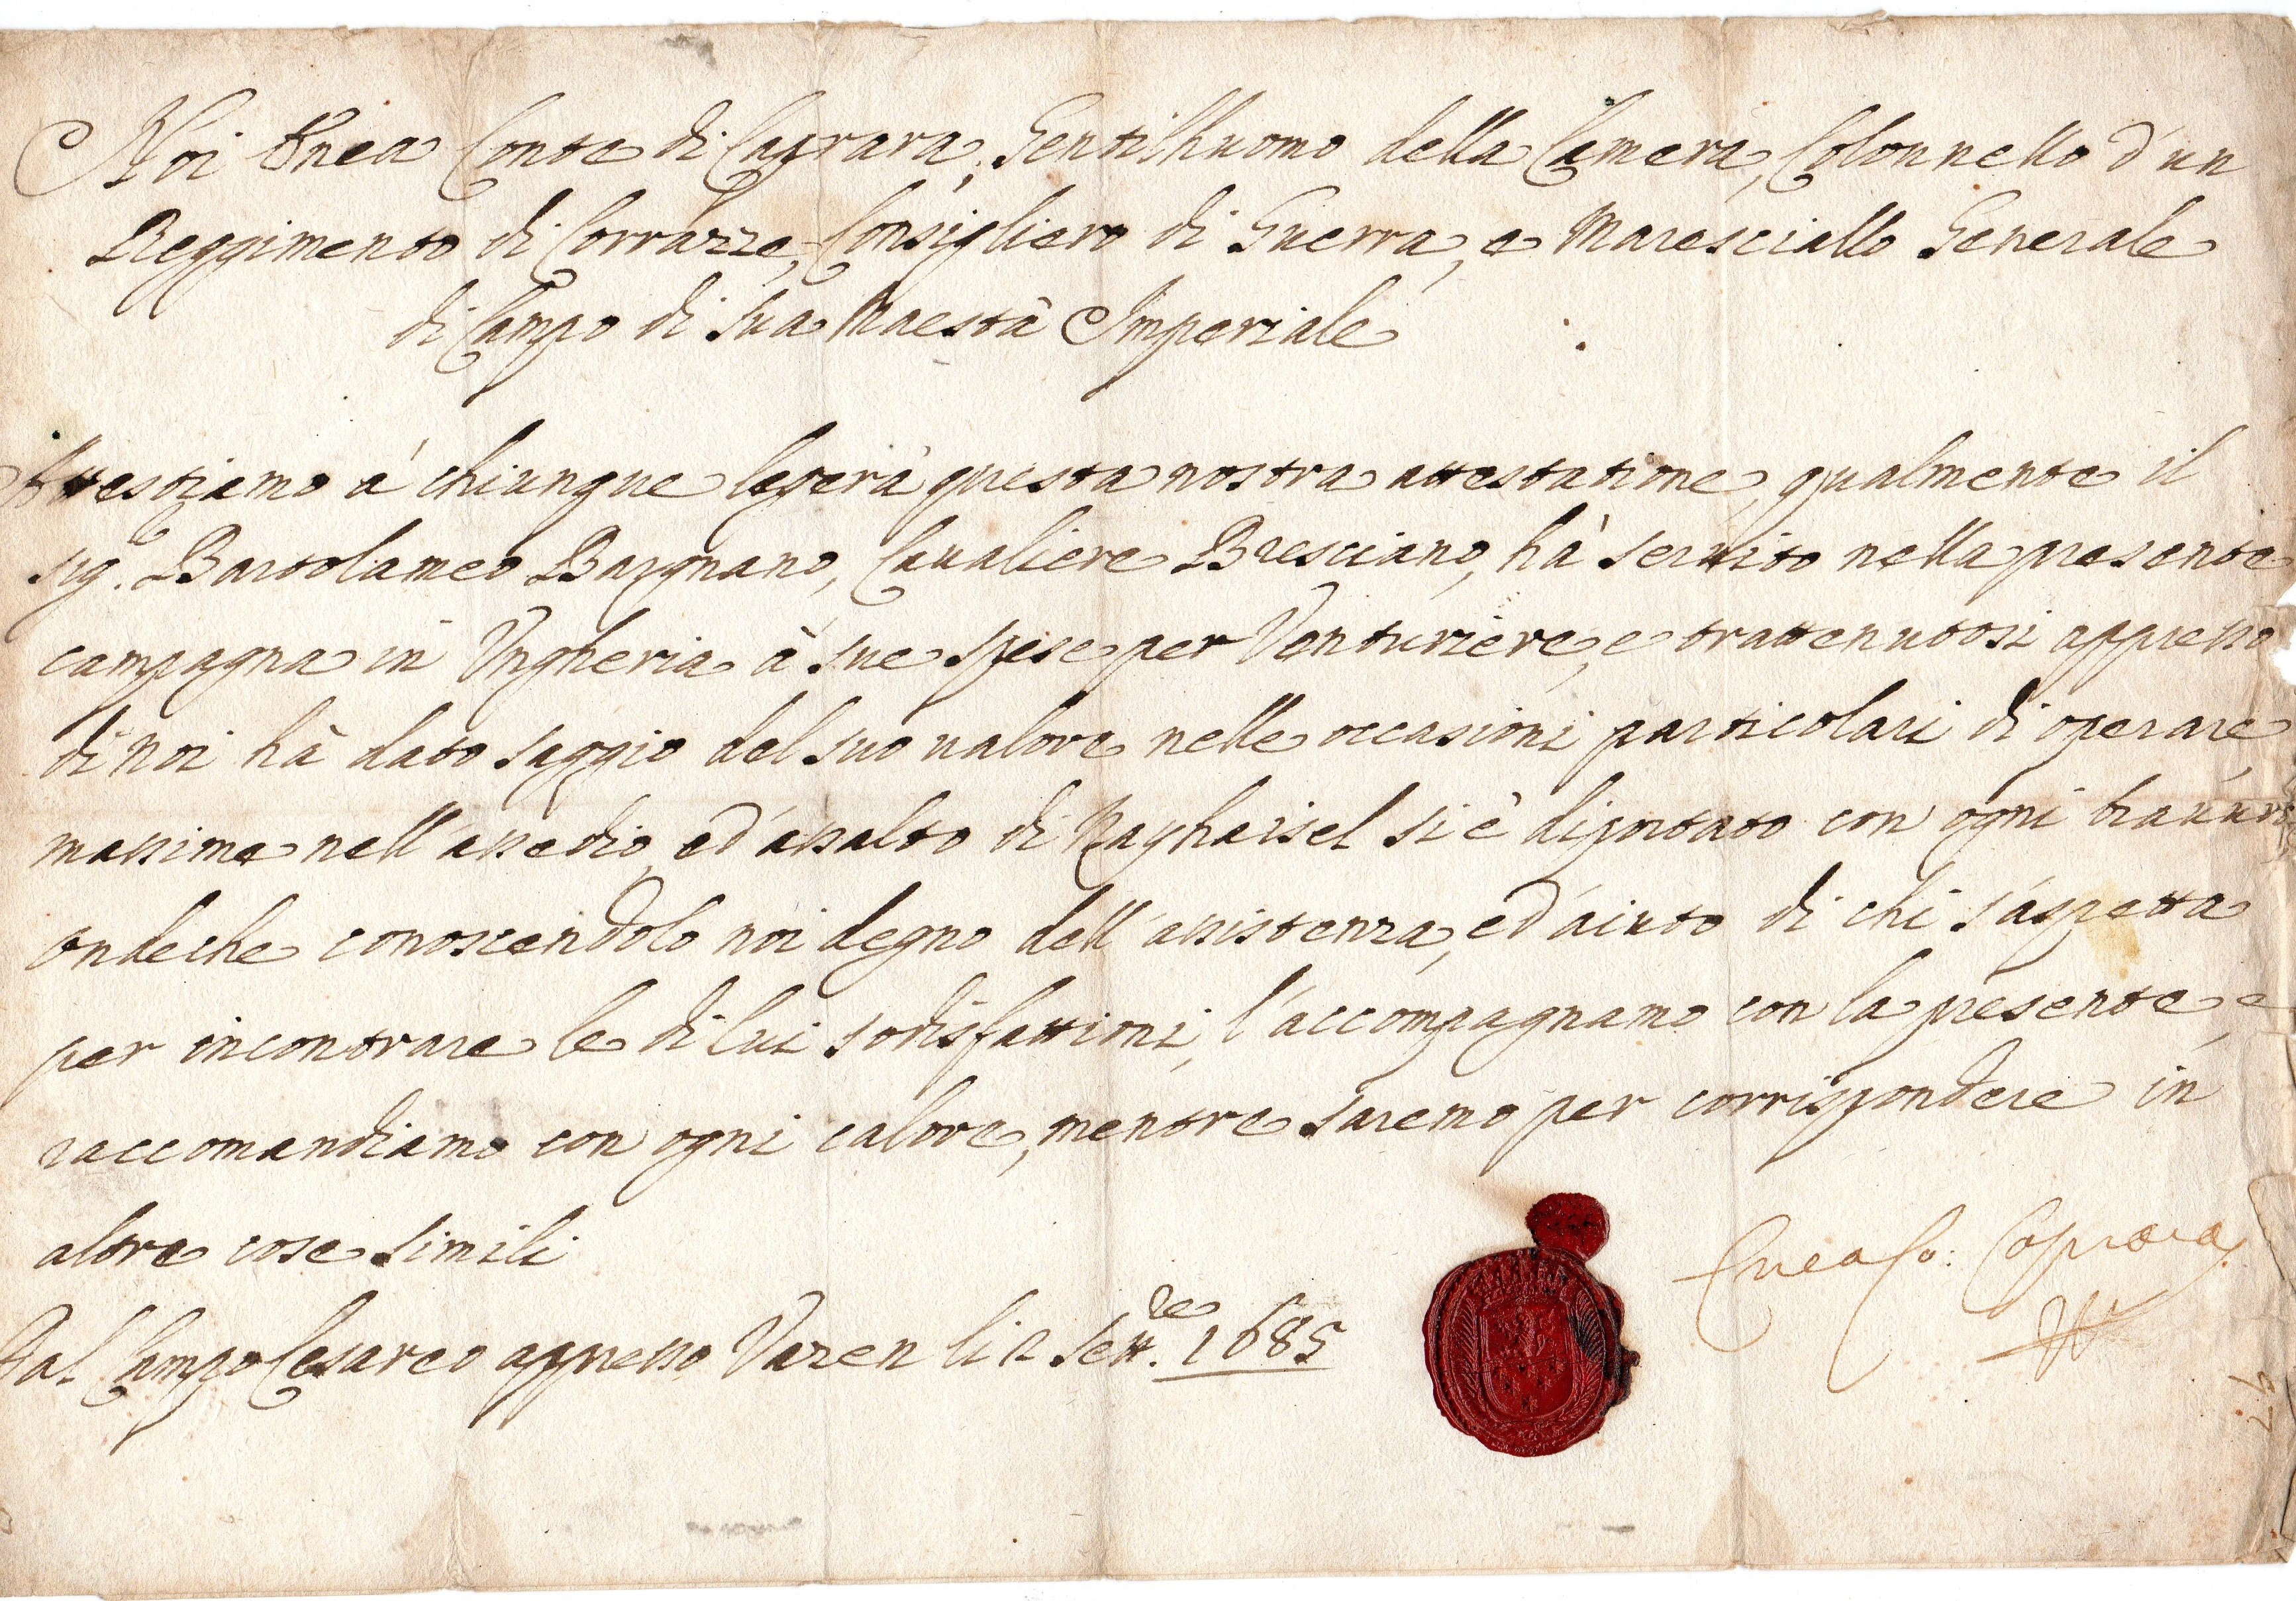 Noi Enea Conte di Caprara, Gentilhuomo della Camera, Colonnello d'un
Reggimento di Corrazze, Consigliero di Guerra, e Maresciallo Generale
di Campo di Sua Maestà Imperiale
Attestiamo à chiunque legerà questa nostra attestatione, qualmente il
sig.r Bartolameo Bargnano, Caualiere Bresciano, hà seruito nella presente
campagna in Ungheria à sue spese per Venturiere, e trattenutosi appresso
di noi hà dato saggio del suo ualore nelle occasioni particolari di operare,
massime nell'assedio, ed'assalto di Nayhaisel si è diportato con ogni brauura
ondeche conoscendolo noi degno dell'assistenza, ed'aiuto di chi s'aspetta
per incontrare le di lui sodisfattioni, l'accompagnamo con la presente, e
raccomandiamo con ogni calore, mentre saremo per corrispondere in
altre cose simili
Dal Campo Cesareo appresso Vazen li 2 Sett.re 1685
Enea Co: Caprara